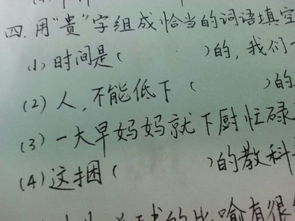 四.用"贵"字组成恰当的词语填空
(1)时间是(　　　)的,我们一
(2)人,不能低下(　　　)的
(3)一大早妈妈就下厨忙碌
(4)这捆(　　　)的教科